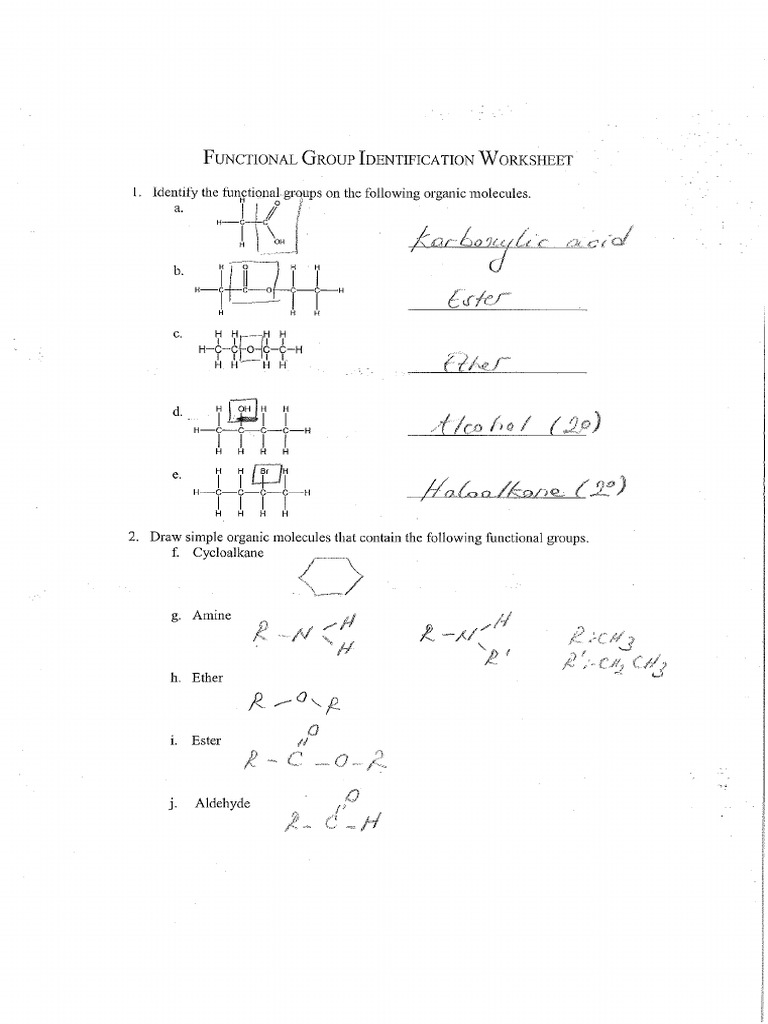 FUNCTIONAL GROUP IDENTIFICATION WORKSHEET
1. Identify the functional groups on the following organic molecules.
a.
H
O
H C C
H
OH
Karboxylic acid
b.
H O H H
H C C O C C H
H H H
Ester
c.
H H H H
H-C-C-O-C-C-H
H H H H
Ether
d.
H OH H H
H C C C C H
H H H H
Alcohol (2º)
e.
H H Br H
H C C C C H
H H H H
Haloalkane (2º)
2. Draw simple organic molecules that contain the following functional groups.
f. Cycloalkane
g. Amine
R-N H H
R-N H R'
R:CH3
R':-CH2CH3
h. Ether
R-O-R
i. Ester
O
R-C-O-R
j. Aldehyde
O
R-C-H